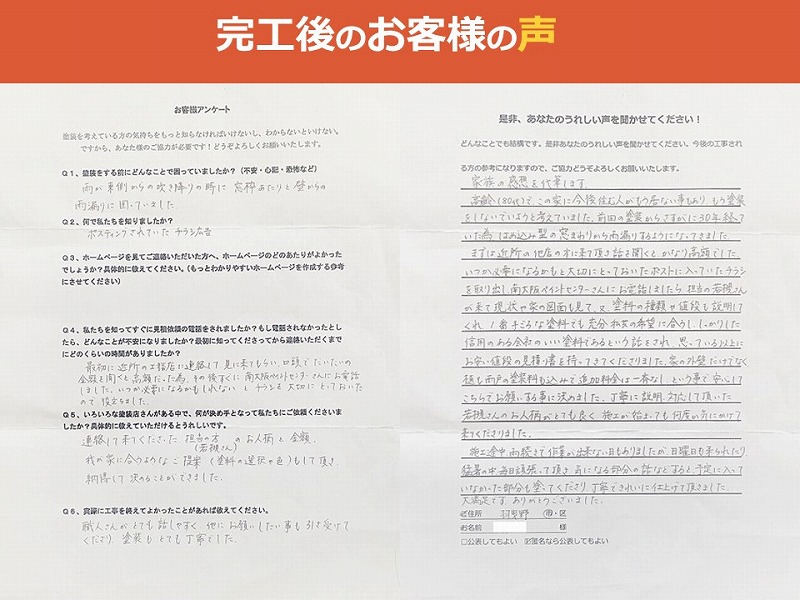 完工後のお客様の声
お客様アンケート
塗装を考えている方の気持ちをもっと知らなければいけないし、わからないといけない。
ですから、あなた様のご協力が必要です！どうぞよろしくお願いいたします。
Q１、塗装をする前にどんなことで困っていましたか？（不安・心配・恐怖など）
雨が東側からの吹き降りの時に 窓枠あたりと壁からの
雨漏りに困っていました。
Q２、何で私たちを知りましたか？
ポスティングされていた チラシ広告
Q３、ホームページを見てご連絡いただいた方へ、ホームページのどのあたりがよかった
でしょうか？具体的に教えてください。（もっとわかりやすいホームページを作成する参考
にさせてください）
Q４、私たちを知ってすぐに見積依頼の電話をされましたか？もし電話されなかったとし
たら、どんなことが不安になりましたか？最初に知ってくださってから連絡いただくまで
にどのくらいの時間がありましたか？
最初に近所の工務店に連絡して見に来てもらい、口頭でだいたいの
金額を聞くと高額だった為、その後すぐに南大阪ペイントセンターさんにお電話
しました。いつか必要になるかもしれない とチラシを大切にとておいた
ので役立ちました。
Q５、いろいろな塗装店さんがある中で、何が決め手となって私たちにご依頼くださいま
したか？具体的に教えていただけるとうれしいです。
連絡して来てくださった 担当の方 のお人柄と金額。
(若槻さん)
我が家に合うようなご提案（塗料の選択や色）もして頂き、
納得して決めることができました。
Q６、実際に工事を終えてよかったことがあれば教えてください。
職人さんがとても話しやすく 他にお願いしたい事も引き受けて
くださり、塗装もとても丁寧でした。
是非、あなたのうれしい声を聞かせてください！
どんなことでも結構です。是非あなたのうれしい声を聞かせてください。今後の工事され
る方の参考になりますので、ご協力どうぞよろしくお願いいたします。
家族の感想を代筆します。
高齢(80代)で、この家に今後住む人がもう居ない事もあり、もう塗装
をしないでいようと考えていました。前回の塗装からさすがに30年経て
いた為 はめ込み型の窓まわりから雨漏りするようになってきました。
まずは近所の他店の方に来て頂き話を聞くと、かなり高額でした。
いつか必要になるかもと大切にとっておいたポストに入っていたチラシ
を取り出し、南大阪ペイントセンターさんにお電話しましたら、担当の若槻さん
が来て現状や家の図面も見て、又、塗料の種類や値段も説明して
くれ、1番手ごろな塗料でも充分私共の希望に合うし、しっかりした
信用のある会社のいい塗料であるという話をされ、思っている以上に
お安い値段の見積り書を持ってきてくださりました。家の外壁だけでなく
樋も雨戸の塗装料も込みで追加料金は一番なし、という事で安心して
こちらでお願いする事に決めました。丁寧に説明、対応して頂いた
若槻さんのお人柄がとても良く、施工が始まっても何度か気にかけて
来てくださりました。
施工途中、雨続きで作業が出来ない日もありましたが、日曜日も来られたり、
猛暑の中、毎日頑張って頂き、気になる部分の話などすると、予定に入って
いなかった部分も塗ってくださり、丁寧できれいに仕上げて頂きました。
大満足です。ありがとうございました。
ご住所 羽曳野 市・区
お名前 様
□公表してもよい ☑匿名なら公表してもよい